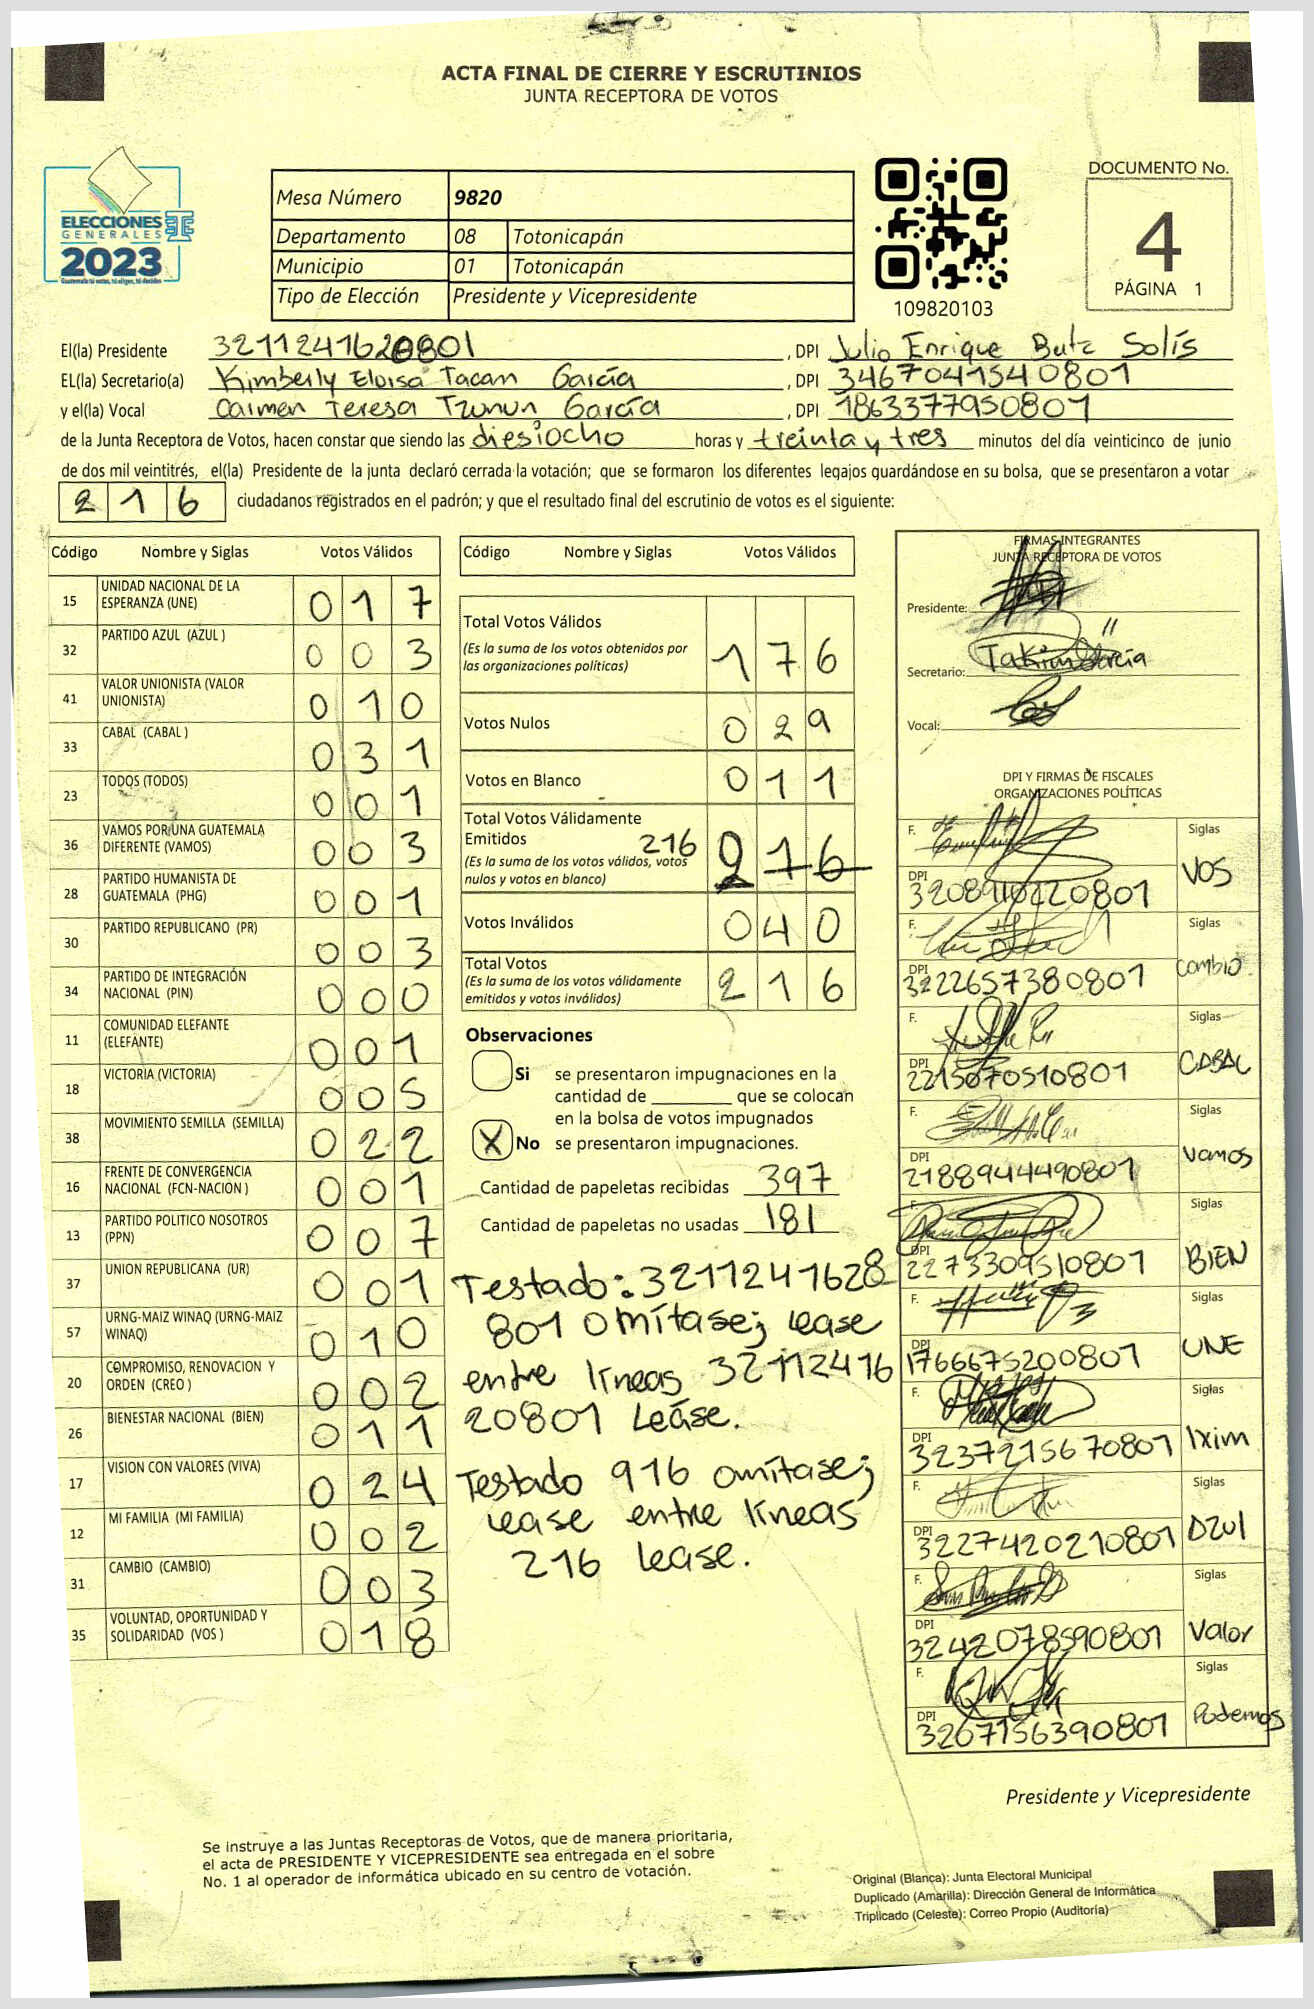 ACTA FINAL DE CIERRE Y ESCRUTINIOS
JUNTA RECEPTORA DE VOTOS
ELECCIONES
GENERALES
2023
TSE
Mesa Número 9820
Departamento 08 Totonicapán
Municipio 01 Totonicapán
Tipo de Elección Presidente y Vicepresidente
109820103
DOCUMENTO No.
4
PÁGINA 1
El(la) Presidente 3211241620801, DPI Julio Enrique Butz Solís
EL(la) Secretario(a) Kimberly Eloisa Tacan García, DPI 3467041540801
y el(la) Vocal Carmen Teresa Tzunun García, DPI 1863377950801
de la Junta Receptora de Votos, hacen constar que siendo las diesiocho horas y treinta y tres minutos del día veinticinco de junio
de dos mil veintitrés, el(la) Presidente de la junta declaró cerrada la votación; que se formaron los diferentes legajos guardándose en su bolsa, que se presentaron a votar
216 ciudadanos registrados en el padrón; y que el resultado final del escrutinio de votos es el siguiente:
Código Nombre y Siglas Votos Válidos
15 UNIDAD NACIONAL DE LA ESPERANZA (UNE) 017
32 PARTIDO AZUL (AZUL ) 003
41 VALOR UNIONISTA (VALOR UNIONISTA) 010
33 CABAL (CABAL ) 031
23 TODOS (TODOS) 001
36 VAMOS POR UNA GUATEMALA DIFERENTE (VAMOS) 003
28 PARTIDO HUMANISTA DE GUATEMALA (PHG) 001
30 PARTIDO REPUBLICANO (PR) 003
34 PARTIDO DE INTEGRACIÓN NACIONAL (PIN) 000
11 COMUNIDAD ELEFANTE (ELEFANTE) 001
18 VICTORIA (VICTORIA) 005
38 MOVIMIENTO SEMILLA (SEMILLA) 022
16 FRENTE DE CONVERGENCIA NACIONAL (FCN-NACION ) 001
13 PARTIDO POLITICO NOSOTROS (PPN) 007
37 UNION REPUBLICANA (UR) 001
57 URNG-MAIZ WINAQ (URNG-MAIZ WINAQ) 010
20 COMPROMISO, RENOVACION Y ORDEN (CREO ) 002
26 BIENESTAR NACIONAL (BIEN) 011
17 VISION CON VALORES (VIVA) 024
12 MI FAMILIA (MI FAMILIA) 002
31 CAMBIO (CAMBIO) 003
35 VOLUNTAD, OPORTUNIDAD Y SOLIDARIDAD (VOS ) 018
Código Nombre y Siglas Votos Válidos
Total Votos Válidos 176
(Es la suma de los votos obtenidos por
las organizaciones políticas)
Votos Nulos 029
Votos en Blanco 011
Total Votos Válidamente
Emitidos 216 916
(Es la suma de los votos válidos, votos
nulos y votos en blanco)
Votos Inválidos 040
Total Votos 216
(Es la suma de los votos válidamente
emitidos y votos inválidos)
Observaciones
Si se presentaron impugnaciones en la
cantidad de ________ que se colocan
en la bolsa de votos impugnados
X No se presentaron impugnaciones.
Cantidad de papeletas recibidas 397
Cantidad de papeletas no usadas 181
Testado: 3211241628
801 omítase; lease
entre líneas 32112416
20801 Leáse.
Testado 916 omítase;
lease entre líneas
216 lease.
FIRMAS INTEGRANTES
JUNTA RECEPTORA DE VOTOS
Presidente:
Secretario:
Vocal:
DPI Y FIRMAS DE FISCALES
ORGANIZACIONES POLÍTICAS
F. Siglas
DPI 3208910220801 VOS
F. Siglas
DPI 3222657380801 Cambio
F. Siglas
DPI 2215070510801 CABAL
F. Siglas
DPI 2188944490801 Vamos
F. Siglas
DPI 2273309510801 BIEN
F. Siglas
DPI 1766675200801 UNE
F. Siglas
DPI 3237215670801 Ixim
F. Siglas
DPI 3227420210801 Dzul
F. Siglas
DPI 3242078590801 Valor
F. Siglas
DPI 3267156390801 Podemos
Presidente y Vicepresidente
Se instruye a las Juntas Receptoras de Votos, que de manera prioritaria,
el acta de PRESIDENTE Y VICEPRESIDENTE sea entregada en el sobre
No. 1 al operador de informática ubicado en su centro de votación.
Original (Blanca): Junta Electoral Municipal
Duplicado (Amarilla): Dirección General de Informática
Triplicado (Celeste): Correo Propio (Auditoría)